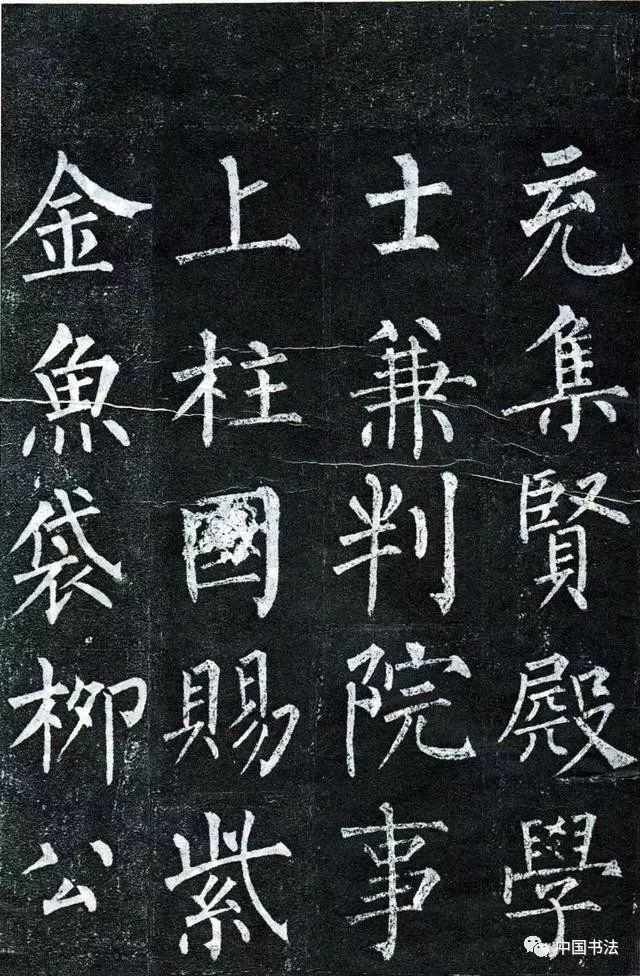 充集賢殿學
士兼判院事
上柱國賜紫
金魚袋柳公
中国书法